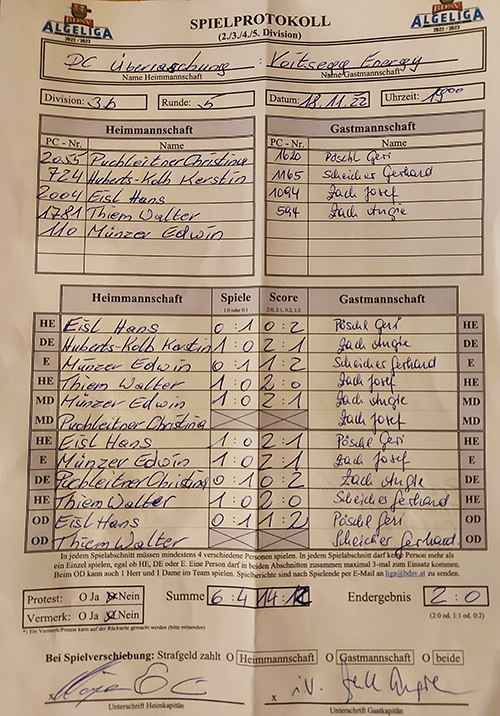 BDSV
ALGELIGA
2022 / 2023
SPIELPROTOKOLL
(2./3./4./5. Division)
BDSV
ALGELIGA
2022 / 2023
DC Überraschung : Voitsegg Energy
Name Heimmannschaft Name Gastmannschaft
Division: 3b Runde: 5 Datum: 18.11.22 Uhrzeit: 19⁰⁰
Heimmannschaft Gastmannschaft
PC - Nr. Name PC - Nr. Name
2055 Puchleitner Christina 1620 Pöschl Geri
724 Huberts-Kolb Kerstin 1165 Scheicher Gerhard
2004 Eisl Hans 1094 Zach Josef
1781 Thiem Walter 594 Zach Angie
110 Münzer Edwin
Heimmannschaft Spiele Score Gastmannschaft
1:0 oder 0:1 2:0, 2:1, 0:2, 1:2
HE Eisl Hans 0 : 1 0 : 2 Pöschl Geri HE
DE Huberts-Kolb Kerstin 1 : 0 2 : 1 Zach Angie DE
E Münzer Edwin 0 : 1 1 : 2 Scheicher Gerhard E
HE Thiem Walter 1 : 0 2 : 0 Zach Josef HE
MD Münzer Edwin 1 : 0 2 : 1 Zach Angie MD
MD Puchleitner Christina Zach Josef MD
HE Eisl Hans 1 : 0 2 : 1 Pöschl Geri HE
E Münzer Edwin 1 : 0 2 : 1 Zach Josef E
DE Puchleitner Christina 0 : 1 0 : 2 Zach Angie DE
HE Thiem Walter 1 : 0 2 : 0 Scheicher Gerhard HE
OD Eisl Hans 0 : 1 1 : 2 Pöschl Geri OD
OD Thiem Walter Scheicher Gerhard OD
In jedem Spielabschnitt müssen mindestens 4 verschiedene Personen spielen. In jedem Spielabschnitt darf keine Person mehr als
ein Einzel spielen, egal ob HE, DE oder E. Eine Person darf in beiden Abschnitten zusammen maximal 3-mal zum Einsatz kommen.
Beim OD kann auch 1 Herr und 1 Dame im Team spielen. Spielberichte sind nach Spielende per E-Mail an liga@bdsv.at zu senden.
Protest: O Ja O Nein Summe 6 : 4 14 : 12 Endergebnis 2 : 0
Vermerk: O Ja O Nein (2:0 od. 1:1 od. 0:2)
*) Ein Vermerk/Protest kann auf der Rückseite gemacht werden (bitte umseitig)
Bei Spielverschiebung: Strafgeld zahlt O Heimmannschaft O Gastmannschaft O beide
x x i.V. Zach Angie
Unterschrift Heimkapitän Unterschrift Gastkapitän